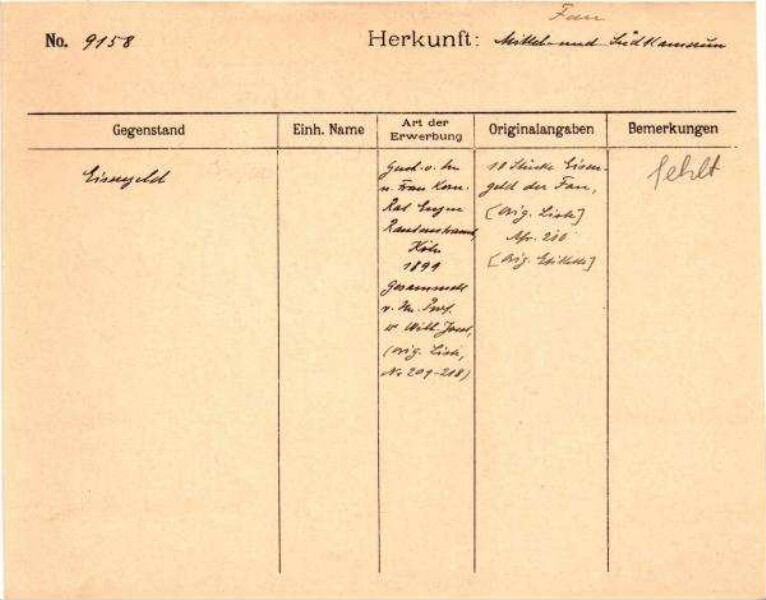 Fan
No. 9158 Herkunft: Mittel- und Südkamerun
Gegenstand Einh. Name Art der Erwerbung Originalangaben Bemerkungen
Eisengeld
Gesch. v. Hn
u. Frau Kom.
Rat Eugen
Rautenstrauch,
Köln
1899
Gesammelt
v. Hn. Prof.
Wilh. Joest,
(orig. Liste,
No 209-218)
10 Stücke Eisen-
geld der Fan,
[Orig. Liste]
Afr. 210
[Orig. Etikette]
fehlt